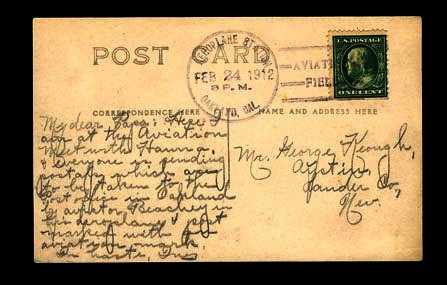 POST CARD
AEROPLANE STATION
FEB 24 1912
3 P.M.
OAKLAND, CAL.
AVIATION
FIELD
U.S. POSTAGE
ONE CENT
CORRESPONDENCE HERE
NAME AND ADDRESS HERE
My dear Papa: Here I
am at the Aviation
Meet with Hanna.
Everyone is sending
postals which are
to be taken to the
post office in Oakland
by aviator Beachey in
his aeroplane & post
marked with
aviation mark.
In haste,
Mr. George Keough,
Austin,
Lander Co,
Nev.